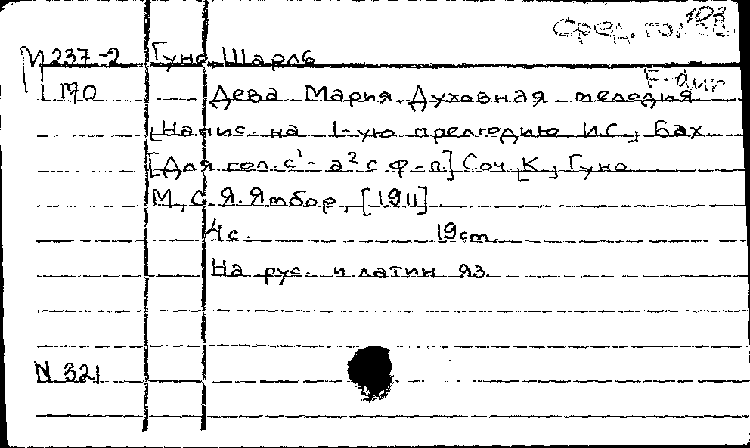 Сред. гол.
М 237-2 Гуно, Шарль
F-dur
170 Дева Мария. Духовная мелодия
[Напис. на 1-ую прелюдию И.С., Бах
[Для гол. с¹- а² с ф-п.] Соч. [К., Гуно
М., С.Я. Ямбор, [1911].
4 с. 19 cm.
На рус. и латин яз.
N 321